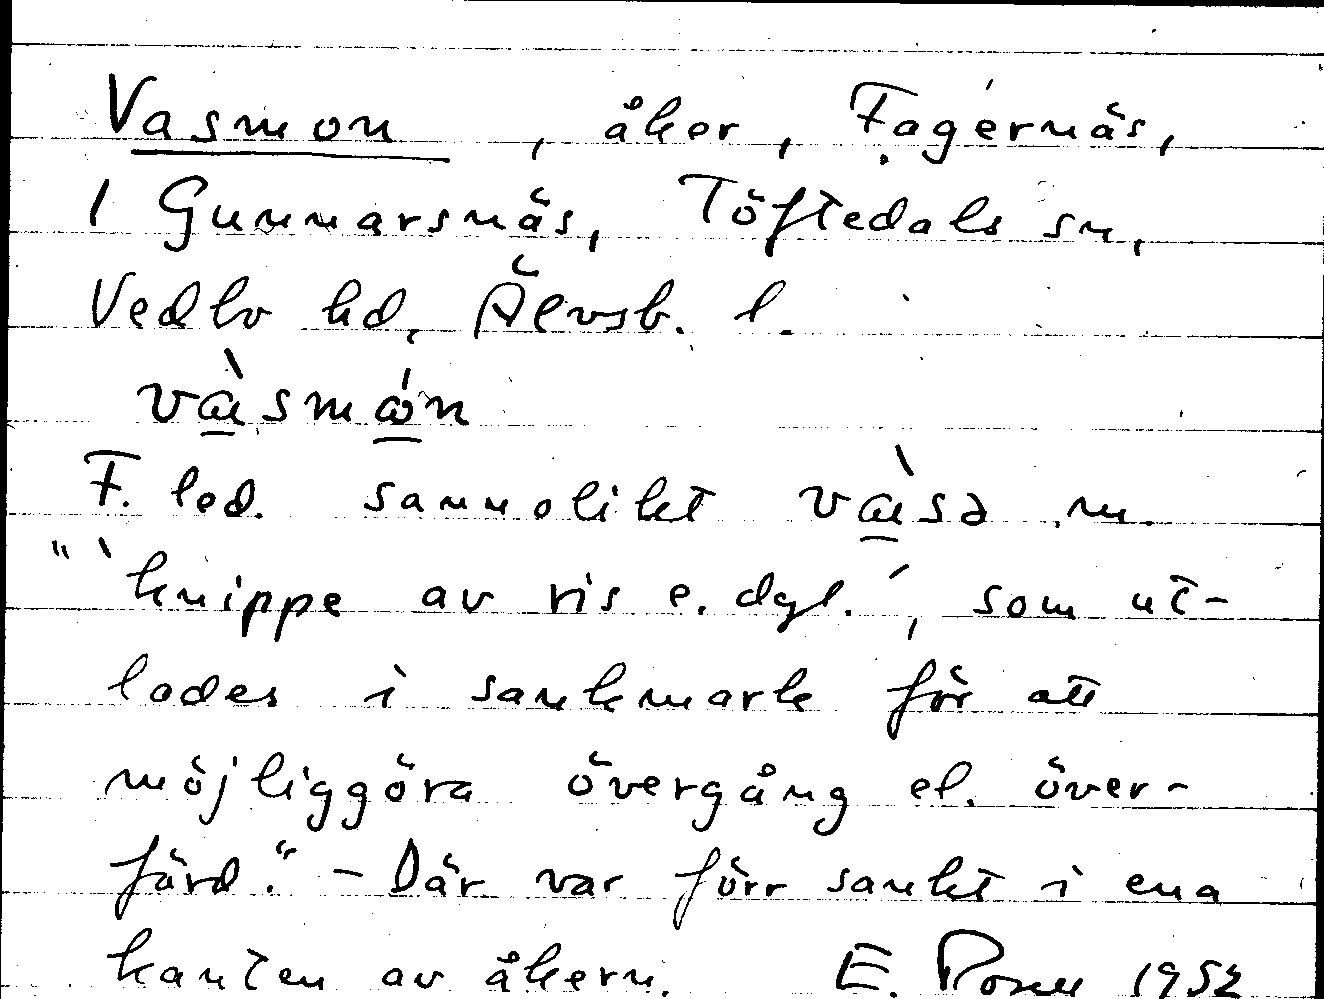 Vasmon, åker, Fagernäs,
1 Gunnarsnäs, Töftedals sn,
Vedbo hd, Älvsb. l.
vàsmón
F. led. sannolikt vàsə m.
"'knippe av ris e. dyl.', som ut-
lades i sankmark för att
möjliggöra övergång el. över-
färd." - Där var förr sankt i ena
kanten av åkern. E. 1952